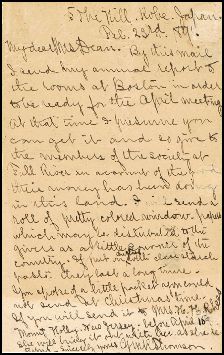 5 The Hill, Kobe, Japan
Dec. 22nd
My dear Mrs. Dean. By this mail
I send my annual report to
the rooms at Boston in order
to be ready for the April meeting
at that time I presume you
can get it and so give to
the members of the society at
Fall River an account of the
their money has been doing
in this land. I send a
roll of pretty colored window paper
which may be distributed to the
givers as a little souvenir of the
country. If put on with
paste they last a long time.
You spoke of a little packet you could
not send at Christmas time
If you will send it to Mrs.
Mount Holly, New Jersey, before April 15
she will bring it